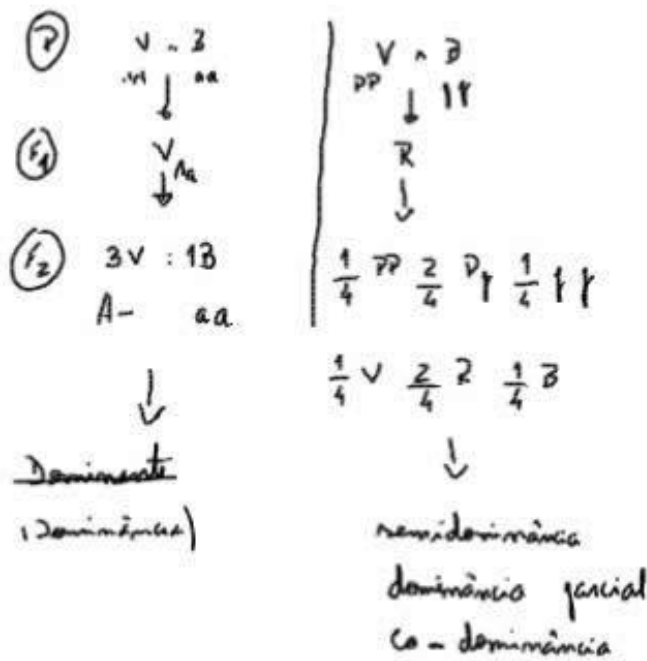 P V x B
AA aa
F1 V
Aa
F2 3V : 1B
A- aa
Dominante
(Dominância)
V x B
PP pp
R
1/4 PP 2/4 Pp 1/4 pp
1/4 V 2/4 R 1/4 B
semidominância
dominância parcial
co-dominância